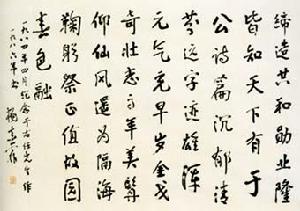 缔造共和业隆
皆知天下有于
公诗篇沉郁清
芬远字迹雄浑
元气充早岁金戈
奇壮志高年美髯
仰仙风还为隔海
鞠躬祭正值故国
春色融
一九八四年四月纪念于右任先生作
一九八六年书